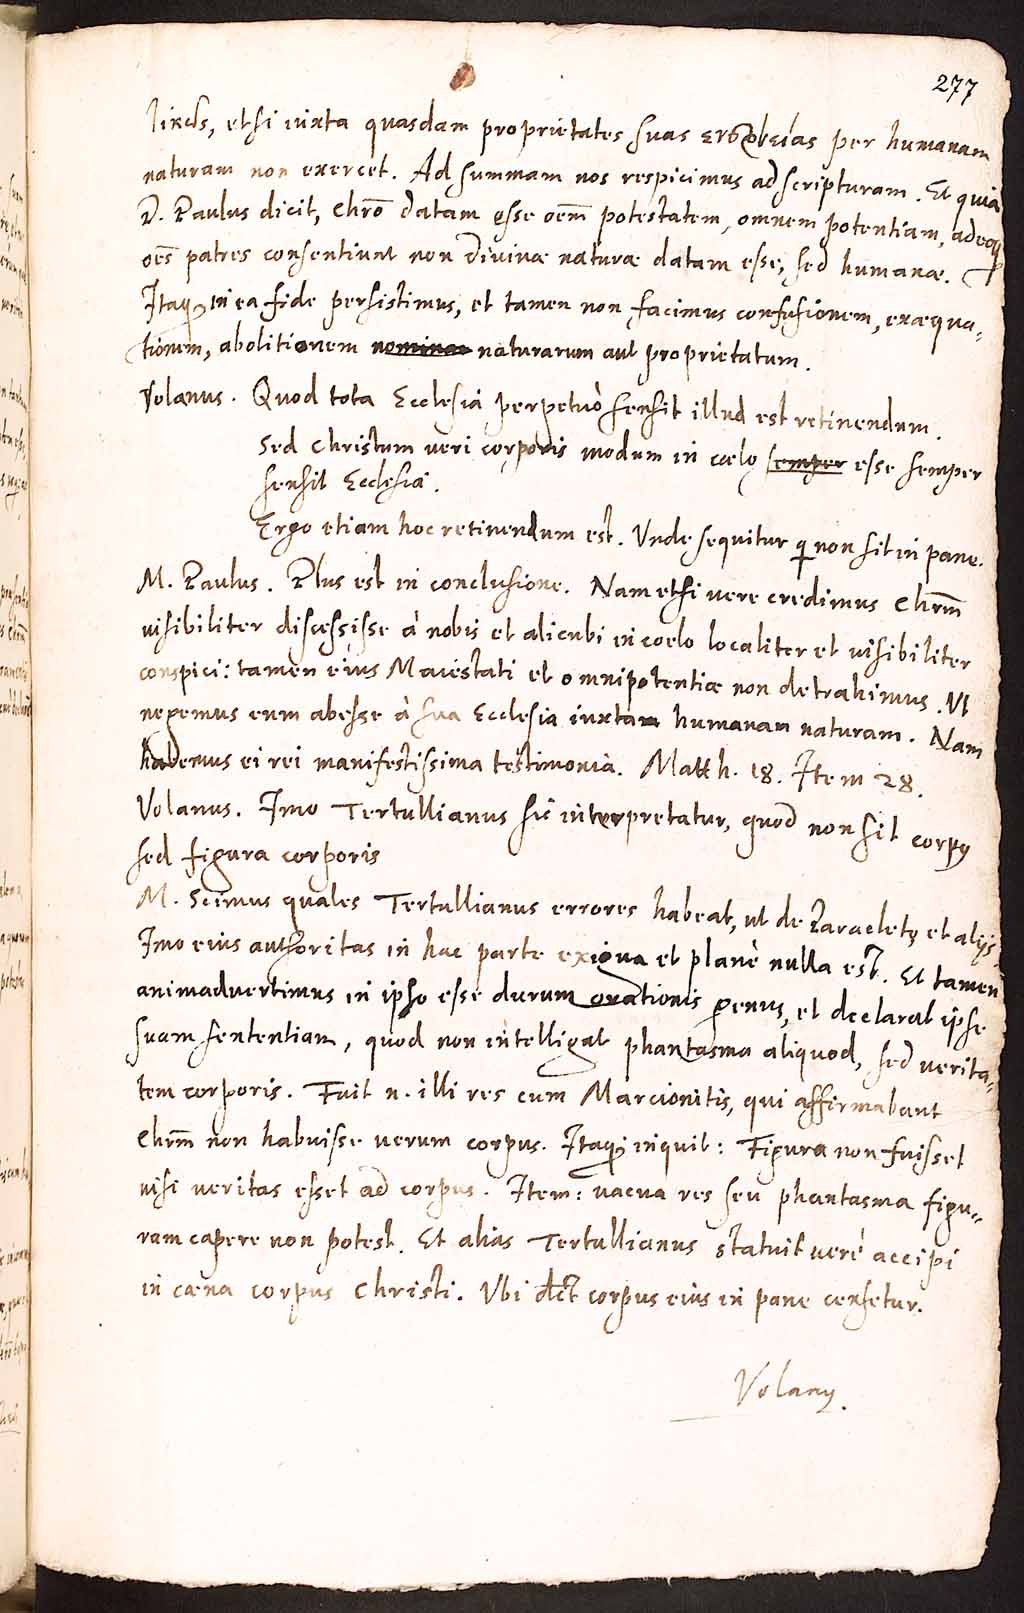 277
sicḋs, etsi iuxta quasdam proprietates suas ενεργείας per humanam
naturam non exercet. Ad summam nos respicimus ad scripturam. Et quia
D. Paulus dicit, Chrō datam esse oēm potestatem, omnem potentiam, adeoq̃
oēs patres consentiunt non Divinæ naturæ datam esse, sed humanæ.
Itaq̃ in ea fide persistimus, et tamen non facimus confusionem, exæqua-
tionem, abolitionem naturarum aut proprietatum.
Volanus. Quod tota Ecclesia perpetuò sensit illud est retinendum.
Sed Christum veri corporis modum in cœlo semper esse semper
sensit Ecclesia.
Ergo etiam hoc retinendum est. Unde sequitur q̃ non sit in pane.
M. Paulus. Plus est in conclusione. Nam etsi vere credimus Chrm̄
visibiliter discessisse à nobis et alicubi in coelo localiter et visibiliter
conspici: tamen eius Maiestati et omnipotentiæ non detrahimus. Ut
negemus eum abesse à sua Ecclesia iuxta humanam naturam. Nam
habemus ei rei manifestissima testimonia. Matth. 18. Item 28.
Volanus. Imo Tertullianus sic interpretatur, quod non sit corpus
sed figura corporis
M. Scimus quales Tertullianus errores habeat, ut de Paracleto et alijs
Imo eius authoritas in hac parte exigua et planè nulla est. Et tamen
animadvertimus in ipso esse durum orationis genus, et declarat ipse
suam sententiam, quod non intelligat phantasma aliquod, sed verita-
tem corporis. Fuit n. illi res cum Marcionitis, qui affirmabant
Chrm̄ non habuisse verum corpus. Itaq̃ inquit: Figura non fuisset
nisi veritas esset ad corpus. Item: vacua res seu phantasma figu-
ram capere non potest. Et alias Tertullianus statuit verè accipi
in cæna corpus Christi. Ubi dct corpus eius in pane censetur.
Volanus.